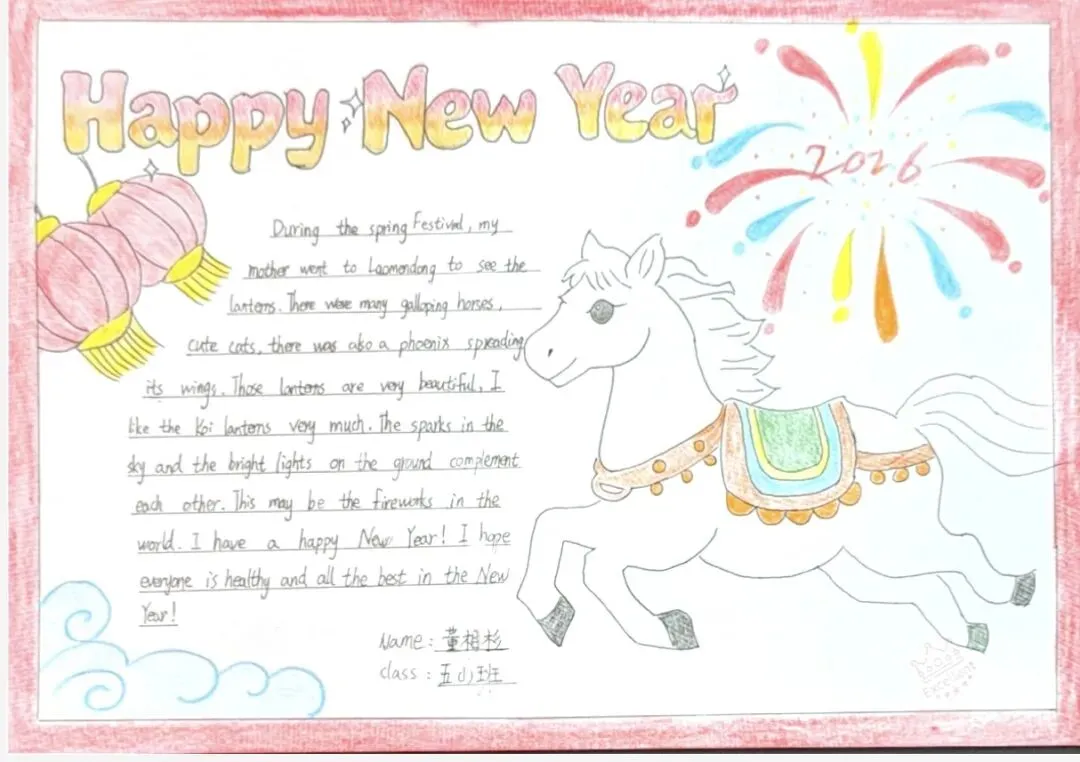 Happy New Year
2026
During the spring Festival, my
mother went to Laomendong to see the
lanterns. There were many galloping horses,
cute cats, there was also a phoenix spreading
its wings. Those lanterns are very beautiful, I
like the Koi lanterns very much. The sparks in the
sky and the bright lights on the ground complement
each other. This may be the fireworks in the
world. I have a happy New Year! I hope
everyone is healthy and all the best in the New
Year!
Name: 董相杉
class: 五班
Excellent